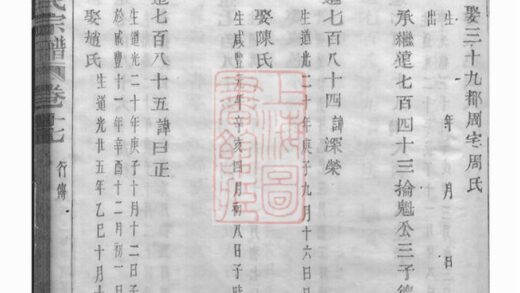 娶三十九都周宅周氏
生 年 月 日
出
承繼達七百四十三掄魁公三子德
達七百八十四諱深榮
生道光二十年庚子九月十六日
娶陳氏
生咸豐元年辛亥四月初八日子時
七百八十五諱曰正
生道光二十年庚子十月十二日子
於咸豐十一年辛酉十二月初一日
娶趙氏
生道光廿五年乙巳十月十
氏宗譜
卷十七
行傳
上海圖